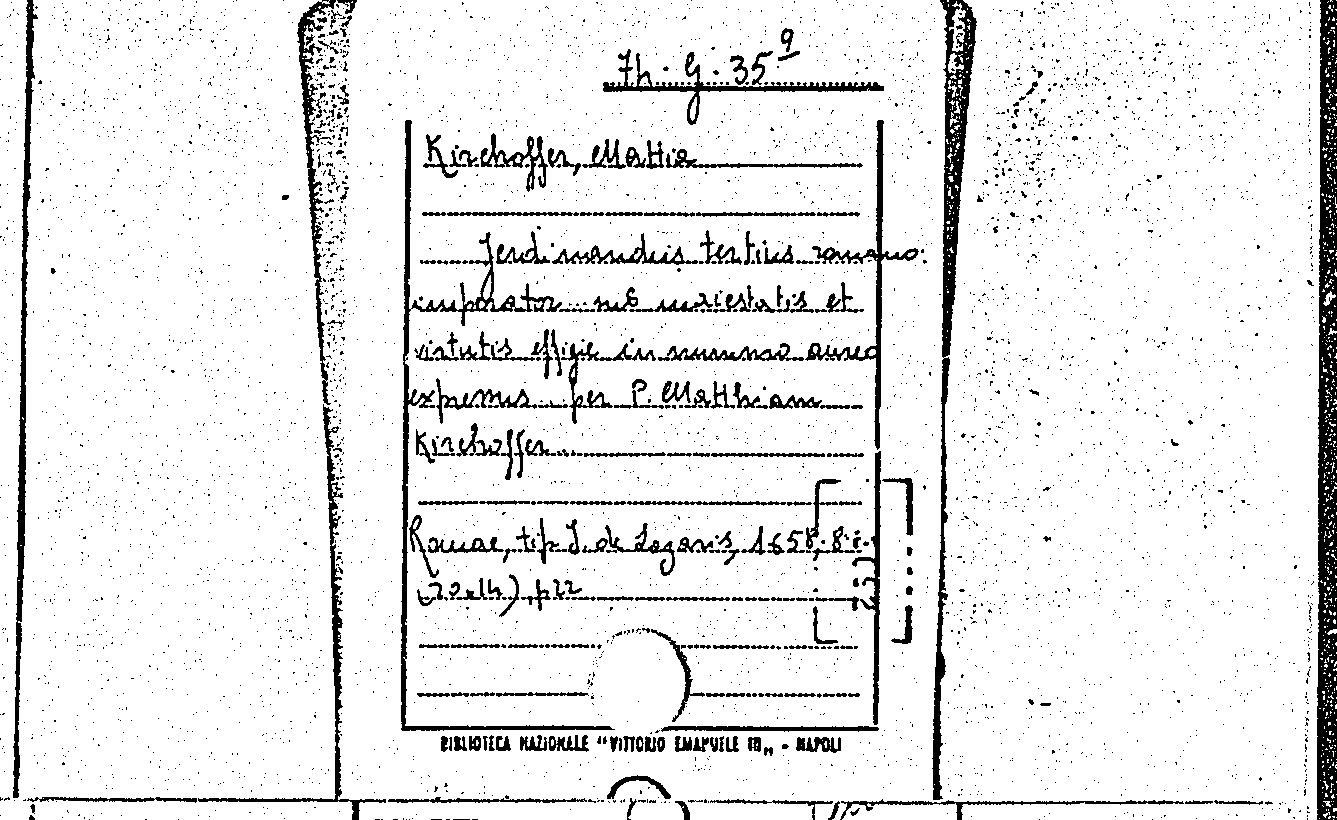 7h. G. 35 9
Kirchoffer, Mattia
Ferdinandus tertius romano:
imperator sub maiestatis et
virtutis effigie in nummo aureo
expressus .. per P. Matthiam
Kirchoffer ...
Romae, tip. J. de Lazaris, 1658, 8:
(20x14), p 22
BIBLIOTECA NAZIONALE "VITTORIO EMANUELE III„ - NAPOLI